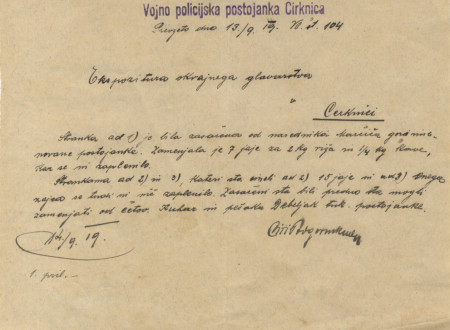 Vojno policijska postojanka Cirknica
Prejeto dne 13/9. 19. VI. št. 104
Ekspozitura okrajnega glavarstva
v
Cerknici
Stranka ad 1) je bila zasačena od narednika gori ime-
novane postojanke. Zamenjala je 7 jajc za 2 kg riža in 1/4 kg kave,
kar se ni zaplenilo.
Strankama ad 2) in 3), kateri sta imeli ad 2) 15 jajc in ad 3) enega
zajca se tudi ni nič zaplenilo. Zasačeni sta bili predno sta mogli
zamenjati od četov. Kuhar in Debeljak tuk. postojanke.
14/9. 19.
1. pril. -